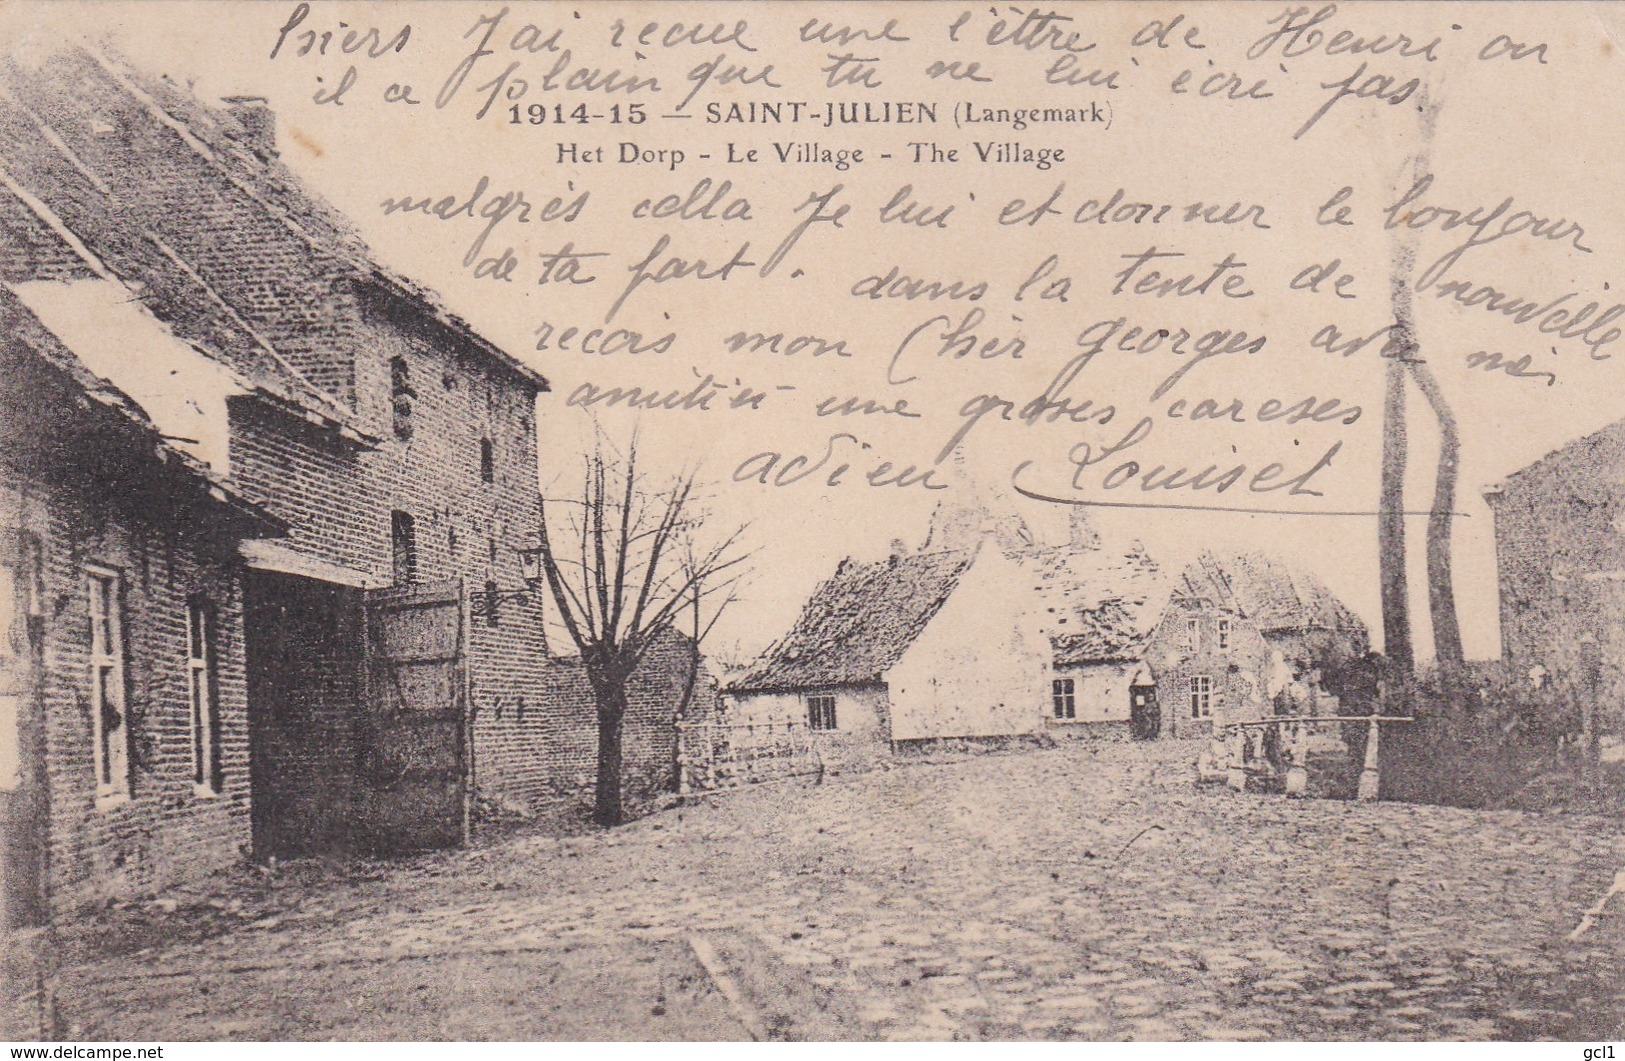 hiers J'ai recue une l'éttre de Henri ou
il ce plain que tu ne lui écri pas.
1914-15 — SAINT-JULIEN (Langemark)
Het Dorp - Le Village - The Village
malgrès cella Je lui et donner le bonjour
de ta part. dans la tente de nouvèlle
recois mon Chèr Georges avec mes
amitiés une groses careses
adieu Louiset
www.delcampe.net
gcl1